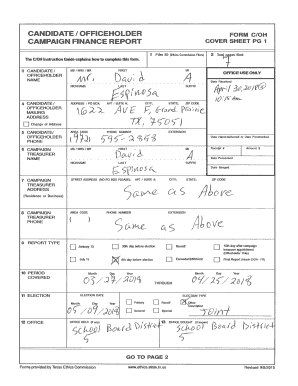 CANDIDATE / OFFICEHOLDER FORM C/OH
CAMPAIGN FINANCE REPORT COVER SHEET PG 1
The C/OH Instruction Guide explains how to complete this form. 1 Filer ID (Ethics Commission Filers) 2 Total pages filed: 7
3 CANDIDATE / OFFICEHOLDER NAME MS / MRS / MR FIRST MI
Mr. David A
NICKNAME LAST SUFFIX
Espinosa
OFFICE USE ONLY
Date Received
April 30, 2018
10:15 am
4 CANDIDATE / OFFICEHOLDER MAILING ADDRESS ADDRESS / PO BOX; APT / SUITE #; CITY; STATE; ZIP CODE
1622 AVE F, Grand Prairie
TX, 75051
Change of Address
5 CANDIDATE / OFFICEHOLDER PHONE AREA CODE PHONE NUMBER EXTENSION
(972) 595-2858
Date Hand-delivered or Date Postmarked
Receipt # Amount $
6 CAMPAIGN TREASURER NAME MS / MRS / MR FIRST MI
Mr David A
NICKNAME LAST SUFFIX
Espinosa
Date Processed
Date Imaged
7 CAMPAIGN TREASURER ADDRESS (Residence or Business) STREET ADDRESS (NO PO BOX PLEASE); APT / SUITE #; CITY; STATE; ZIP CODE
Same as Above
8 CAMPAIGN TREASURER PHONE AREA CODE PHONE NUMBER EXTENSION
( ) Same as Above
9 REPORT TYPE
January 15 30th day before election Runoff 15th day after campaign treasurer appointment (Officeholder Only)
July 15 8th day before election Exceeded $500 limit Final Report (Attach C/OH - FR)
10 PERIOD COVERED Month Day Year Month Day Year
03/27/2018 THROUGH 04/25/2018
11 ELECTION ELECTION DATE ELECTION TYPE
Month Day Year Primary Runoff Other Description
General Special Joint
12 OFFICE OFFICE HELD (if any) 13 OFFICE SOUGHT (if known)
School Board District 5 School Board District 5
GO TO PAGE 2
Forms provided by Texas Ethics Commission www.ethics.state.tx.us